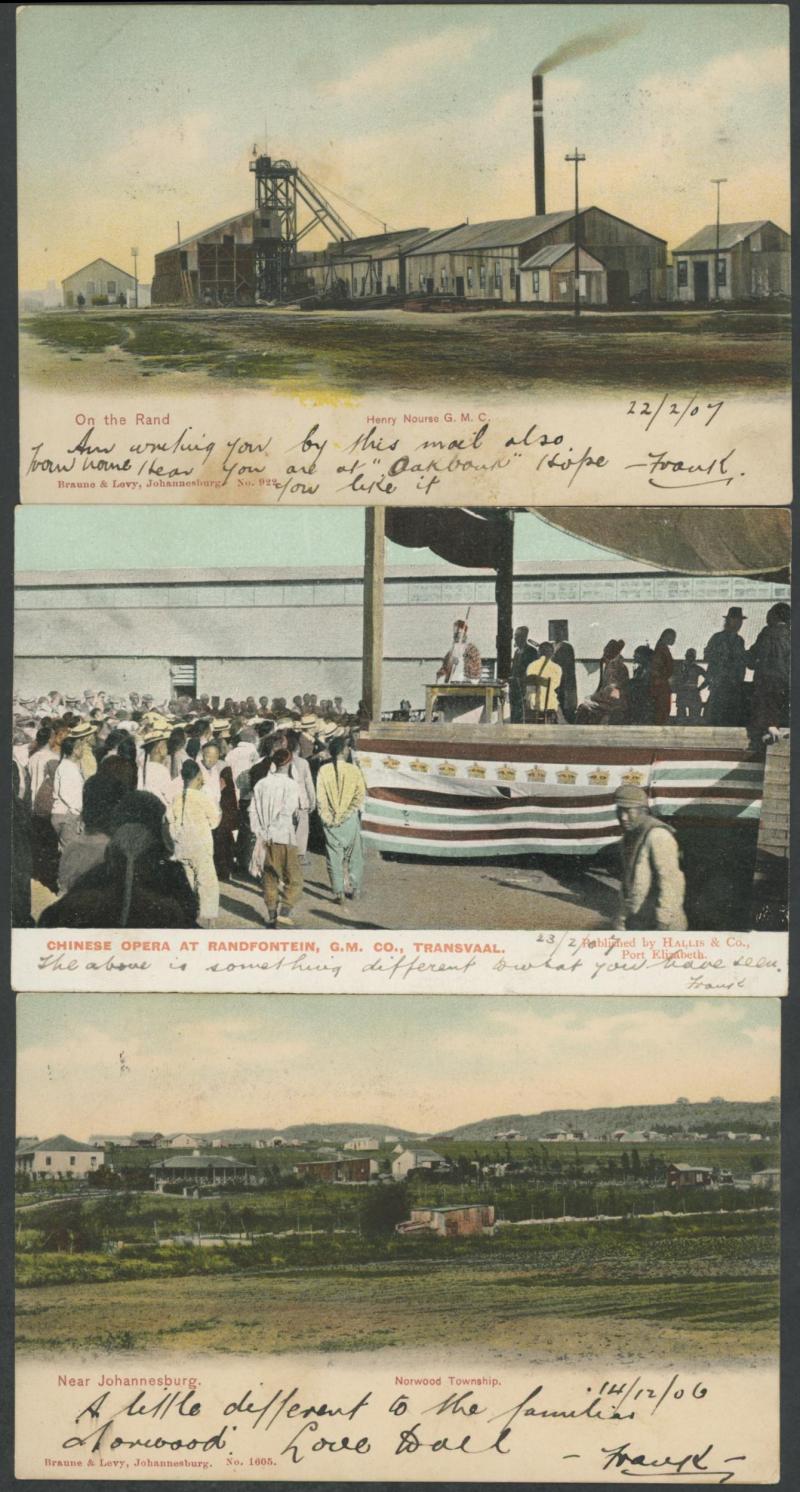 On the Rand
Henry Nourse G. M. C.
22/2/07
Am writing you by this mail also
from home Hear you are at "Oakbank" Hope — Frank.
Braune & Levy, Johannesburg. No. 922
you like it
CHINESE OPERA AT RANDFONTEIN, G.M. CO., TRANSVAAL.
23/2/07
Published by HALLIS & Co.,
Port Elizabeth.
The above is something different to what you have seen.
Frank
Near Johannesburg.
Norwood Township.
14/12/06
A little different to the families
Norwood. Love to all
Braune & Levy, Johannesburg. No. 1605.
— Frank —